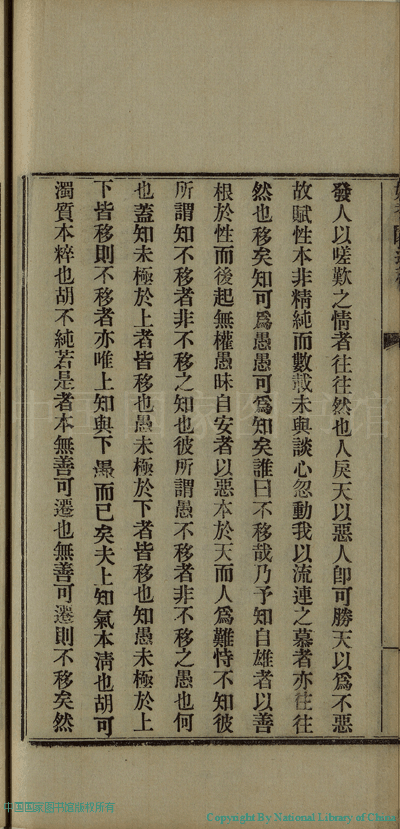 發人以嗟歎之情者往往然也人戾天以惡人卽可勝天以爲不惡
故賦性本非精純而數載未與談心忽動我以流連之慕者亦往往
然也移矣知可爲愚愚可爲知矣誰曰不移哉乃予知自雄者以善
根於性而後起無權愚昧自安者以惡本於天而人爲難恃不知彼
所謂知不移者非不移之知也彼所謂愚不移者非不移之愚也何
也蓋知未極於上者皆移也愚未極於下者皆移也知愚未極於上
下皆移則不移者亦唯上知與下愚而已矣夫上知氣本淸也胡可
濁質本粹也胡不純若是者本無善可遷也無善可遷則不移矣然
中国国家图书馆版权所有
Copyright By National Library of China